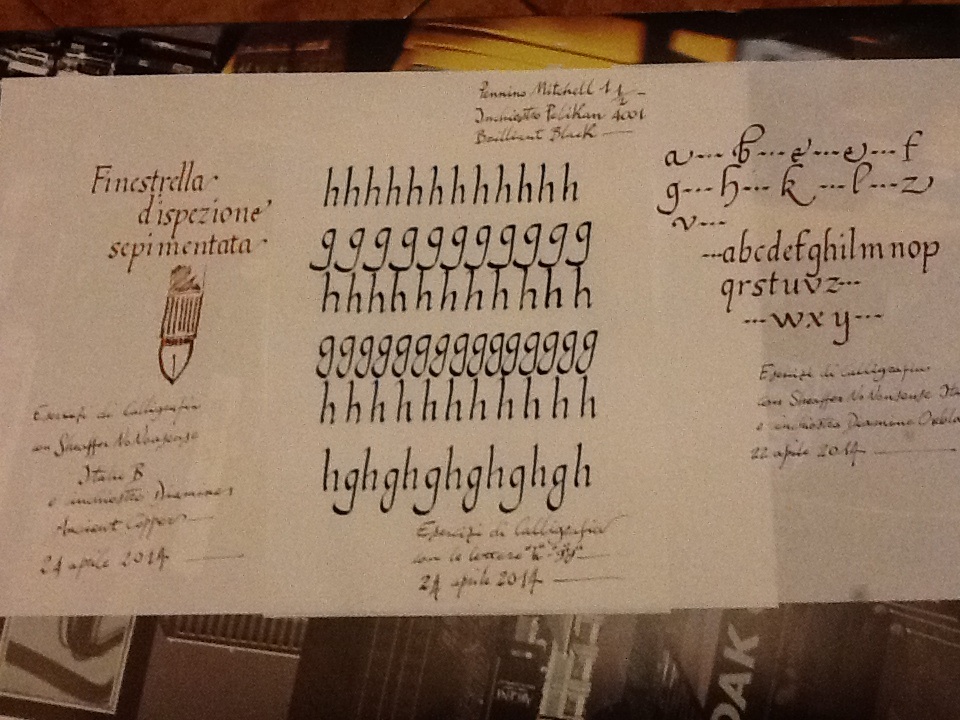 Finestrella
d'ispezione
sepimentata
Esercizi di Calligrafia
con Sheaffer NoNonsense
Italic B
e inchiostro Diamine
Ancient Copper
24 aprile 2014
Pennino Mitchell 1 1/2
Inchiostro Pelikan 4001
Brilliant Black
hhhhhhhhhhhh
ggggggggggg
hhhhhhhhhhh
ggggggggggggggg
hhhhhhhhhhh
hghghghghgh
Esercizi di Calligrafia
con le lettere "h" - "g"
24 aprile 2014
a--- b---e---e---f
g---h---k---l---z
v---
---abcdefghilmnop
qrstuvz---
---wxy---
Esercizi di Calligrafia
con Sheaffer NoNonsense Ita
e inchiostro Diamine Oxblo
22 aprile 2014